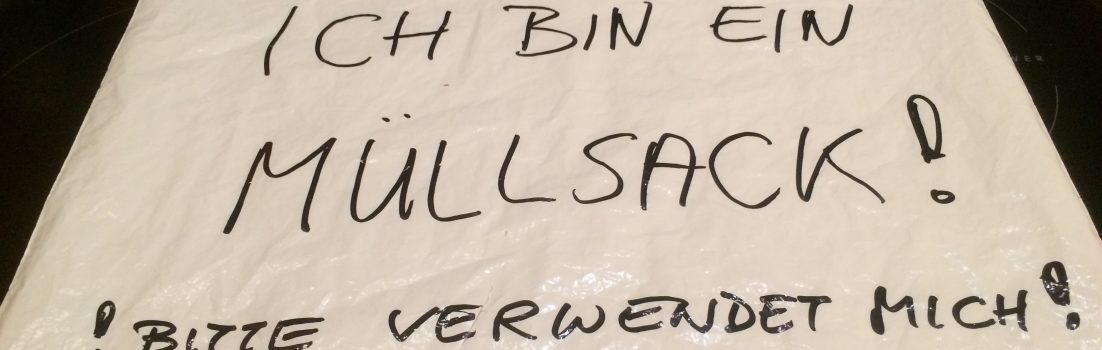 ICH BIN EIN
MÜLLSACK!
! BITTE VERWENDET MICH!